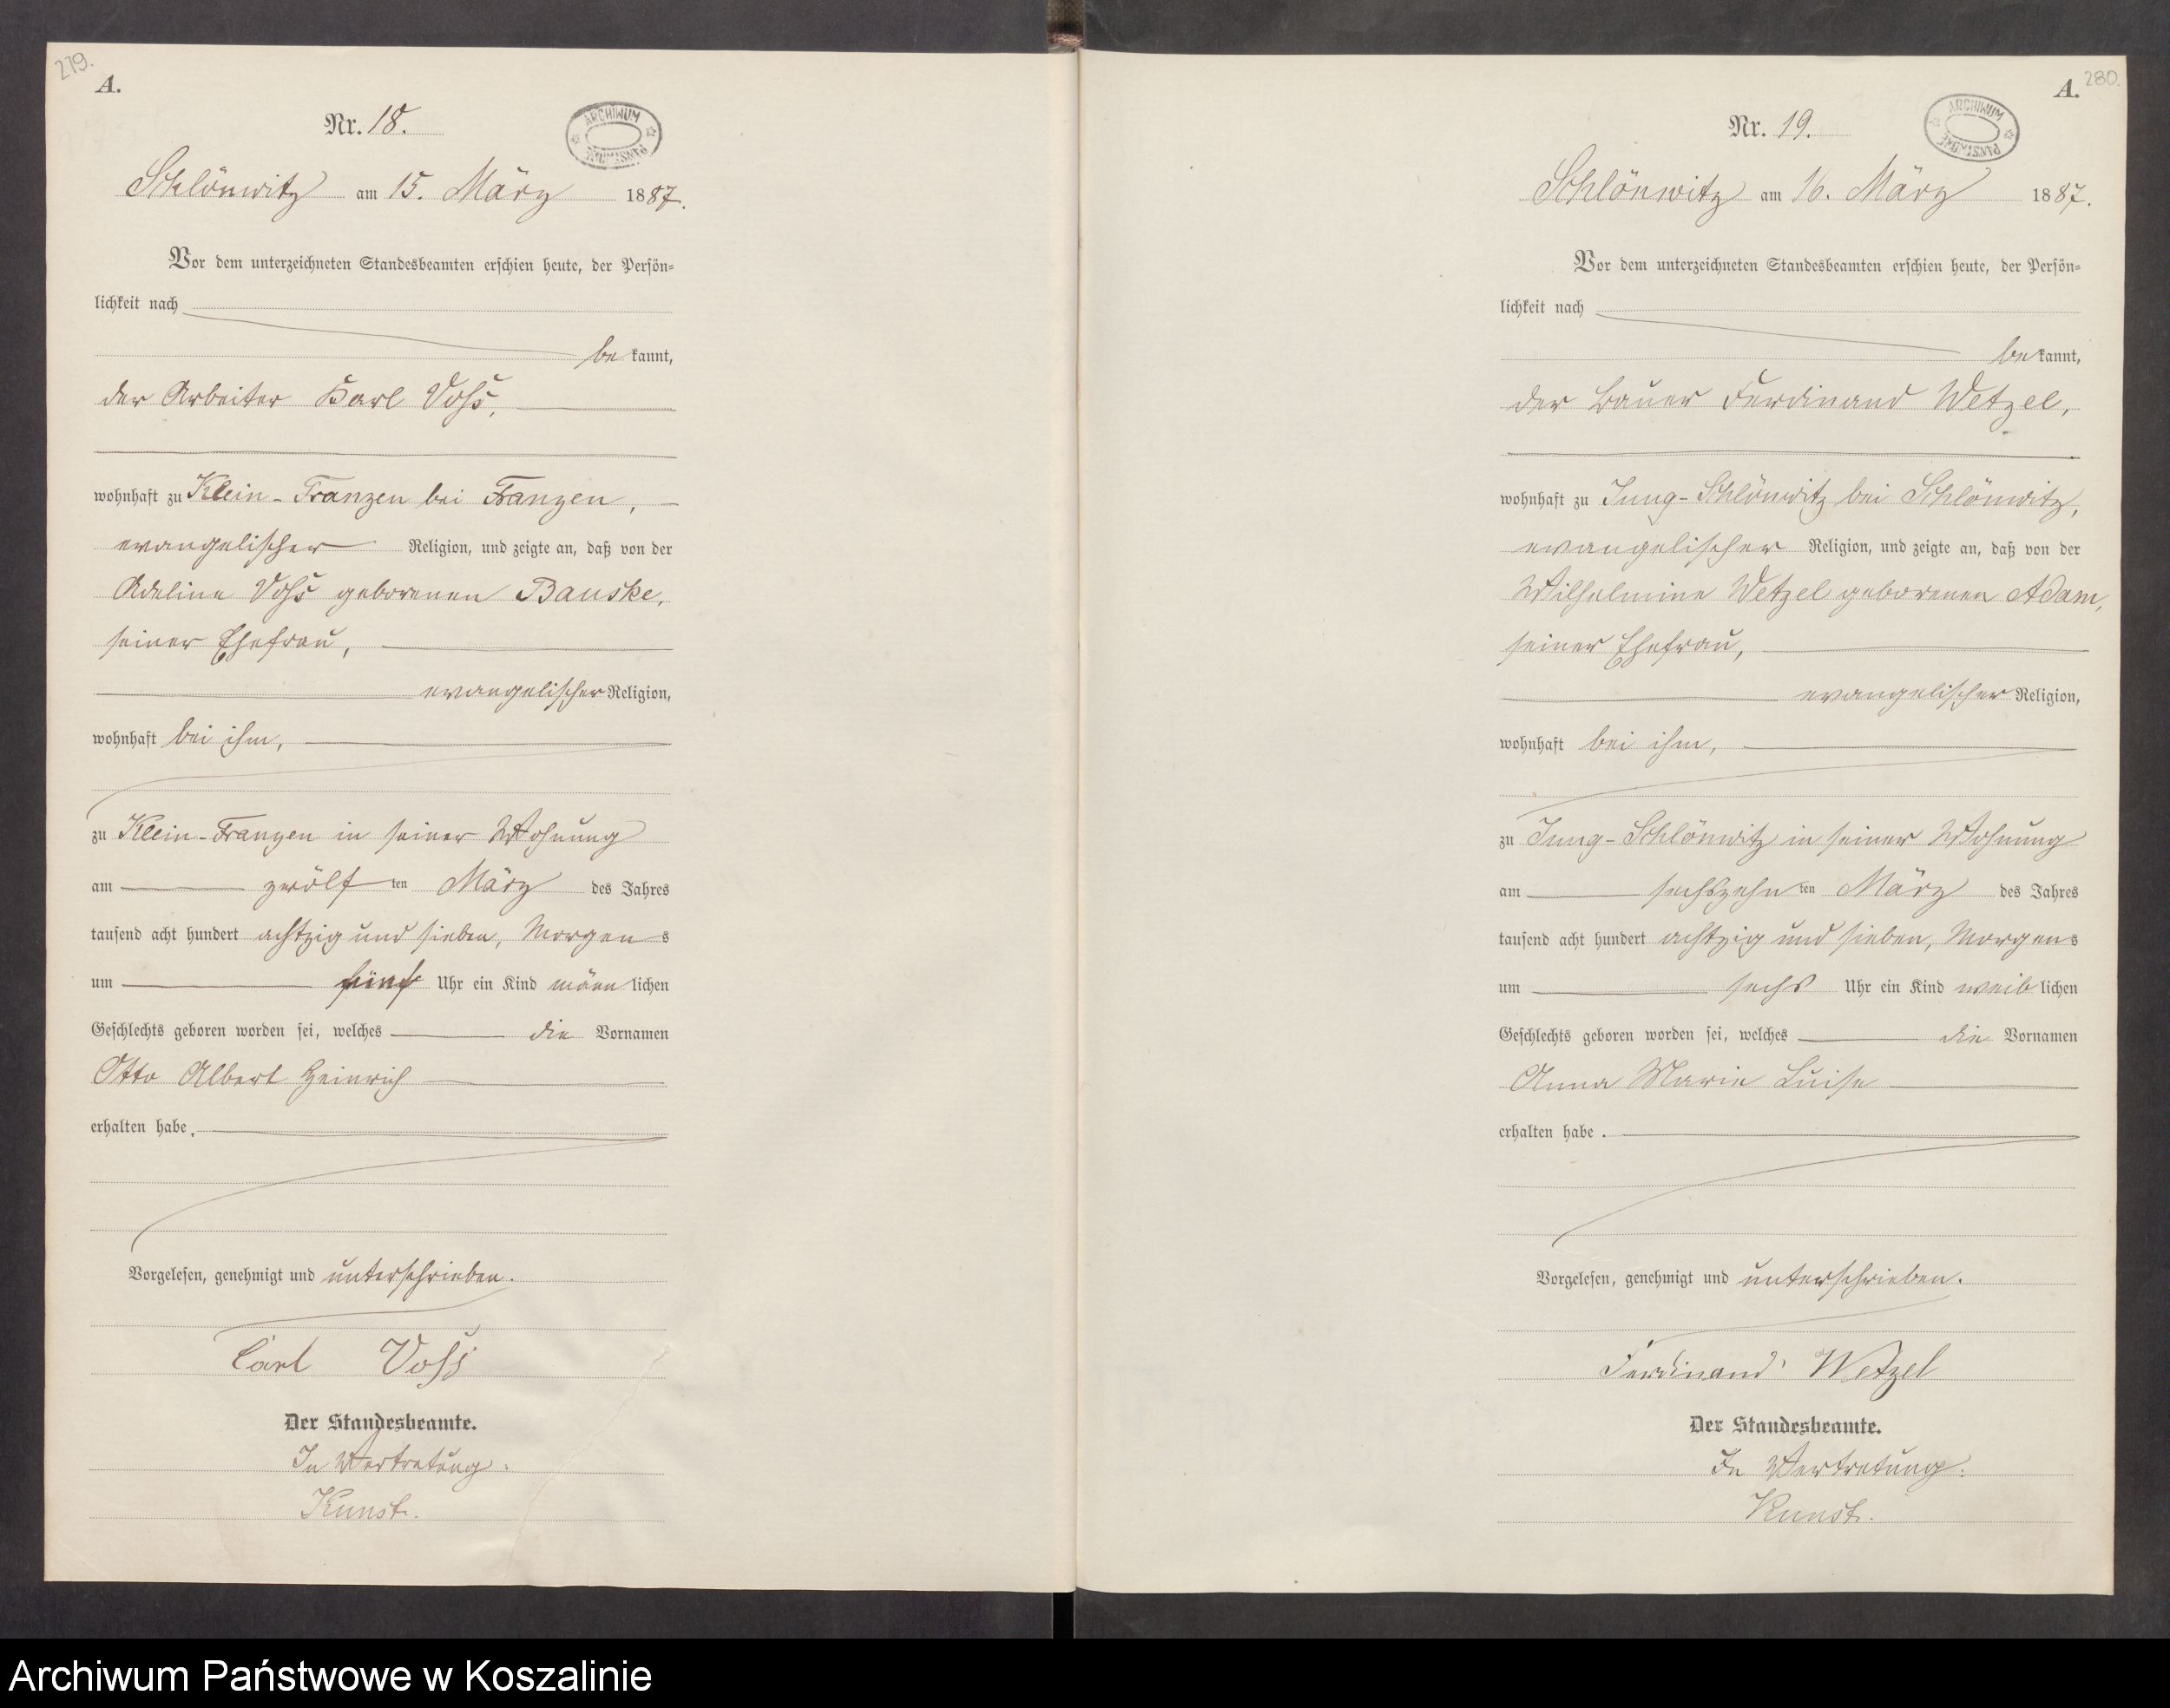 279.
A.
Nr. 18.
ARCHIWUM PAŃSTWOWE
Schlönwitz am 15. März 1887.
Vor dem unterzeichneten Standesbeamten erschien heute, der Persön-
lichkeit nach
bekannt,
der Arbeiter Karl Voß,
wohnhaft zu Klein-Franzen bei Franzen,
evangelischer Religion, und zeigte an, daß von der
Adeline Voß geborenen Bauske,
seiner Ehefrau,
evangelischer Religion,
wohnhaft bei ihm,
zu Klein-Franzen in seiner Wohnung
am zwölften März des Jahres
tausend acht hundert achtzig und sieben, Morgens
um fünf Uhr ein Kind männlichen
Geschlechts geboren worden sei, welches die Vornamen
Otto Albert Heinrich
erhalten habe.
Vorgelesen, genehmigt und unterschrieben.
Carl Voß
Der Standesbeamte.
In Vertretung.
Kunst.
280.
A.
Nr. 19.
ARCHIWUM PAŃSTWOWE
Schlönwitz am 16. März 1887.
Vor dem unterzeichneten Standesbeamten erschien heute, der Persön-
lichkeit nach
bekannt,
der Bauer Ferdinand Wetzel,
wohnhaft zu Jung-Schlönwitz bei Schlönwitz,
evangelischer Religion, und zeigte an, daß von der
Wilhelmine Wetzel geborenen Adam,
seiner Ehefrau,
evangelischer Religion,
wohnhaft bei ihm,
zu Jung-Schlönwitz in seiner Wohnung
am sechszehnten März des Jahres
tausend acht hundert achtzig und sieben, Morgens
um sechs Uhr ein Kind weiblichen
Geschlechts geboren worden sei, welches die Vornamen
Anna Marie Luise
erhalten habe.
Vorgelesen, genehmigt und unterschrieben.
Ferdinand Wetzel
Der Standesbeamte.
In Vertretung.
Kunst.
Archiwum Państwowe w Koszalinie